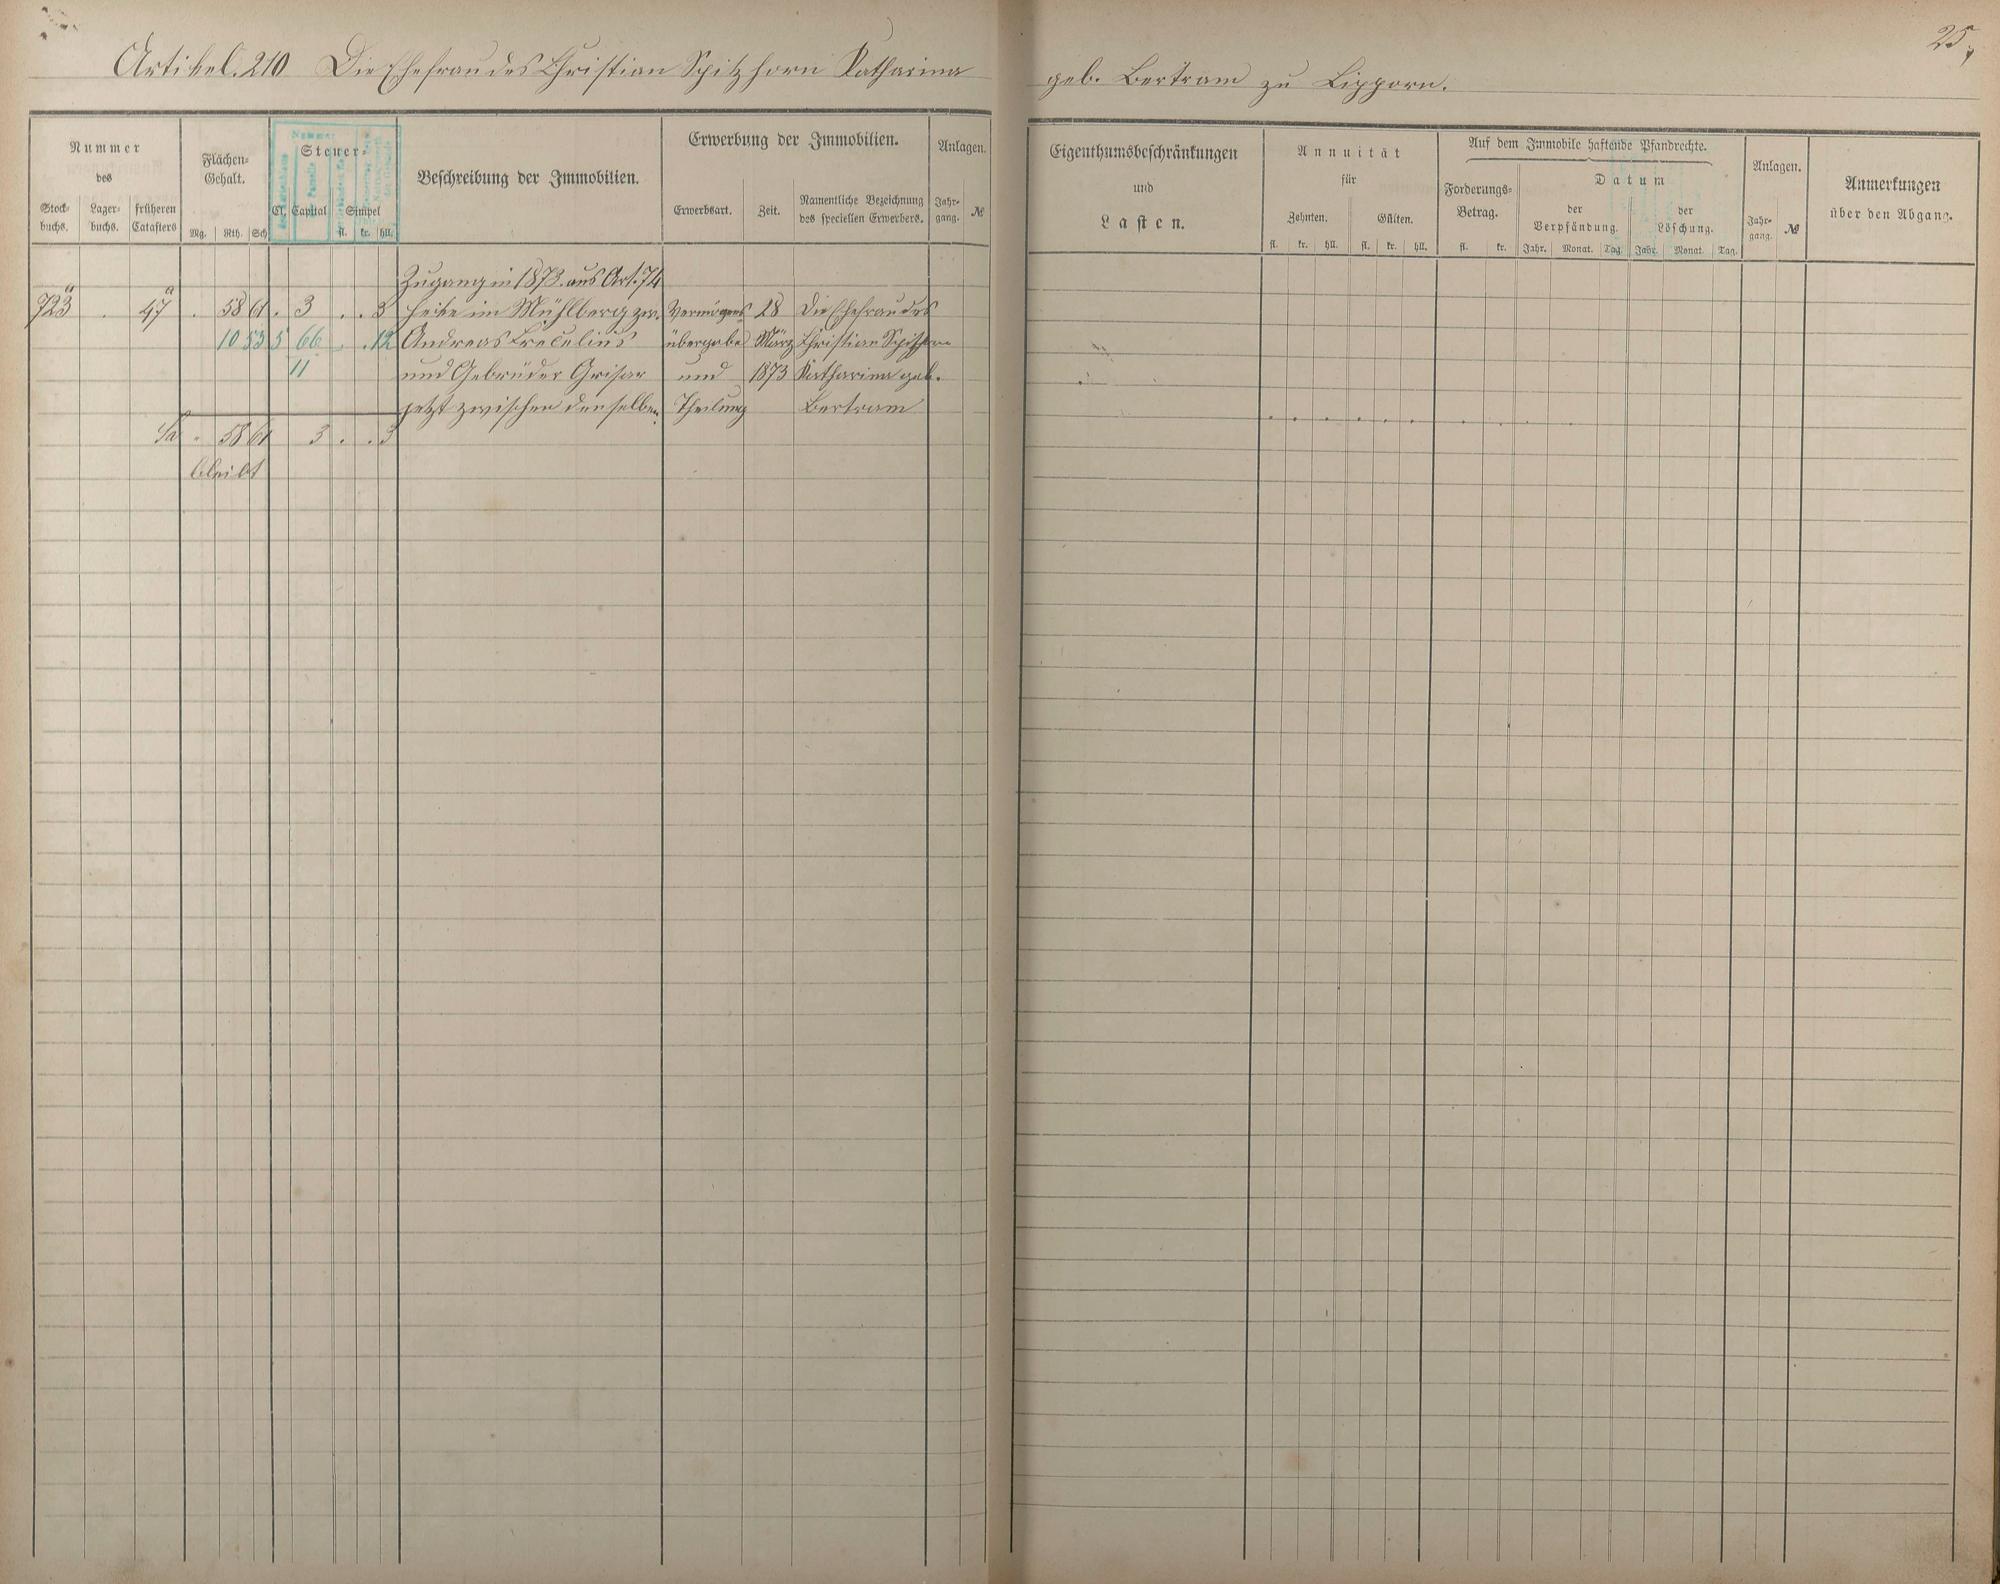 Artikel. 210 Die Ehefrau des Christian Spitzhorn Katharina geb. Bertram zu Lipporn.
Nummer
des
Stock-
buchs.
Lager-
buchs.
früheren
Catasters
Flächen-
Gehalt.
Mg. Rth. Sch
Steuer-
Cl. Capital Simpel
fl. kr. hll.
Beschreibung der Immobilien.
Erwerbung der Immobilien.
Erwerbsart. Zeit.
Namentliche Bezeichnung
des speciellen Erwerbers.
Anlagen.
Jahr-
gang. №
Eigenthumsbeschränkungen
und
Lasten.
Annuität
für
Zehnten. Gülten.
fl. kr. hll. fl. kr. hll.
Auf dem Immobile haftende Pfandrechte.
Forderungs-
Betrag.
fl. kr.
Datum
der
Verpfändung.
Jahr. Monat. Tag.
der
Löschung.
Jahr. Monat. Tag.
Anlagen.
Jahr-
gang. №
Anmerkungen
über den Abgang.
Zugang in 1873. aus Art. 74
723 a . 47 a . 58 61 . 3 . . 3 Hecke im Mühlberg zw. Vermögens 28 Die Ehefrau des
10 53 5 66 . . 12 Andreas übergabe März Christian Spitzhorn
11 und Gebrüder Grisar und 1873 Katharina geb.
jetzt zwischen denselben. Theilung Bertram
Sa . 58 61 3 . . 3
bleibt